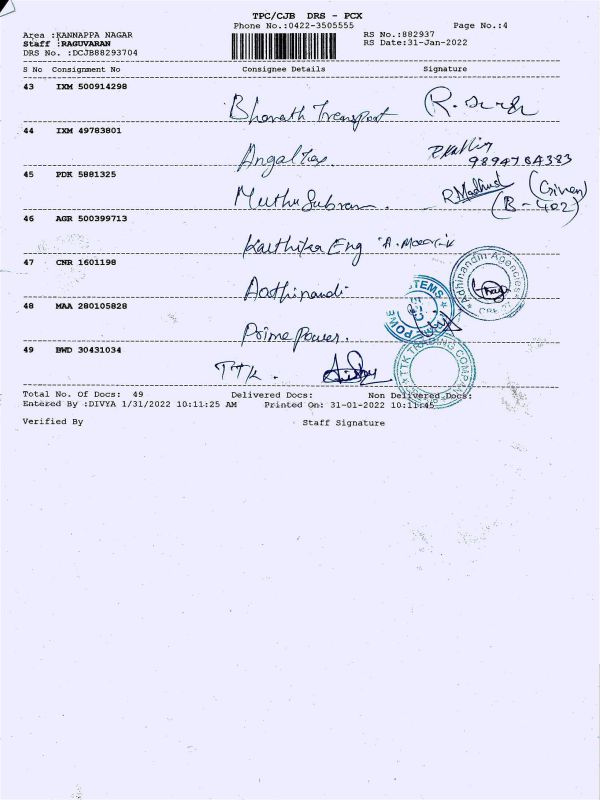 TPC/CJB DRS - PCX
Phone No.:0422-3505555 Page No.:4
Area :KANNAPPA NAGAR RS No.:882937
Staff :RAGUVARAN RS Date:31-Jan-2022
DRS No. :DCJB88293704
S No Consignment No Consignee Details Signature
43 IXM 500914298
Bharath Transport
44 IXM 49783801
9894764383
45 PDK 5881325
Muthu Subram. (Given)
(B-402)
46 AGR 500399713
Karthika Eng
47 CNR 1601198
Aadhinandi
Adhinandhi Agencies
48 MAA 280105828
Prime Power.
49 BWD 30431034
TTK.
TTK TRADING COMPANY
Total No. Of Docs: 49 Delivered Docs: Non Delivered Docs:
Entered By :DIVYA 1/31/2022 10:11:25 AM Printed On: 31-01-2022 10:11:45
Verified By Staff Signature